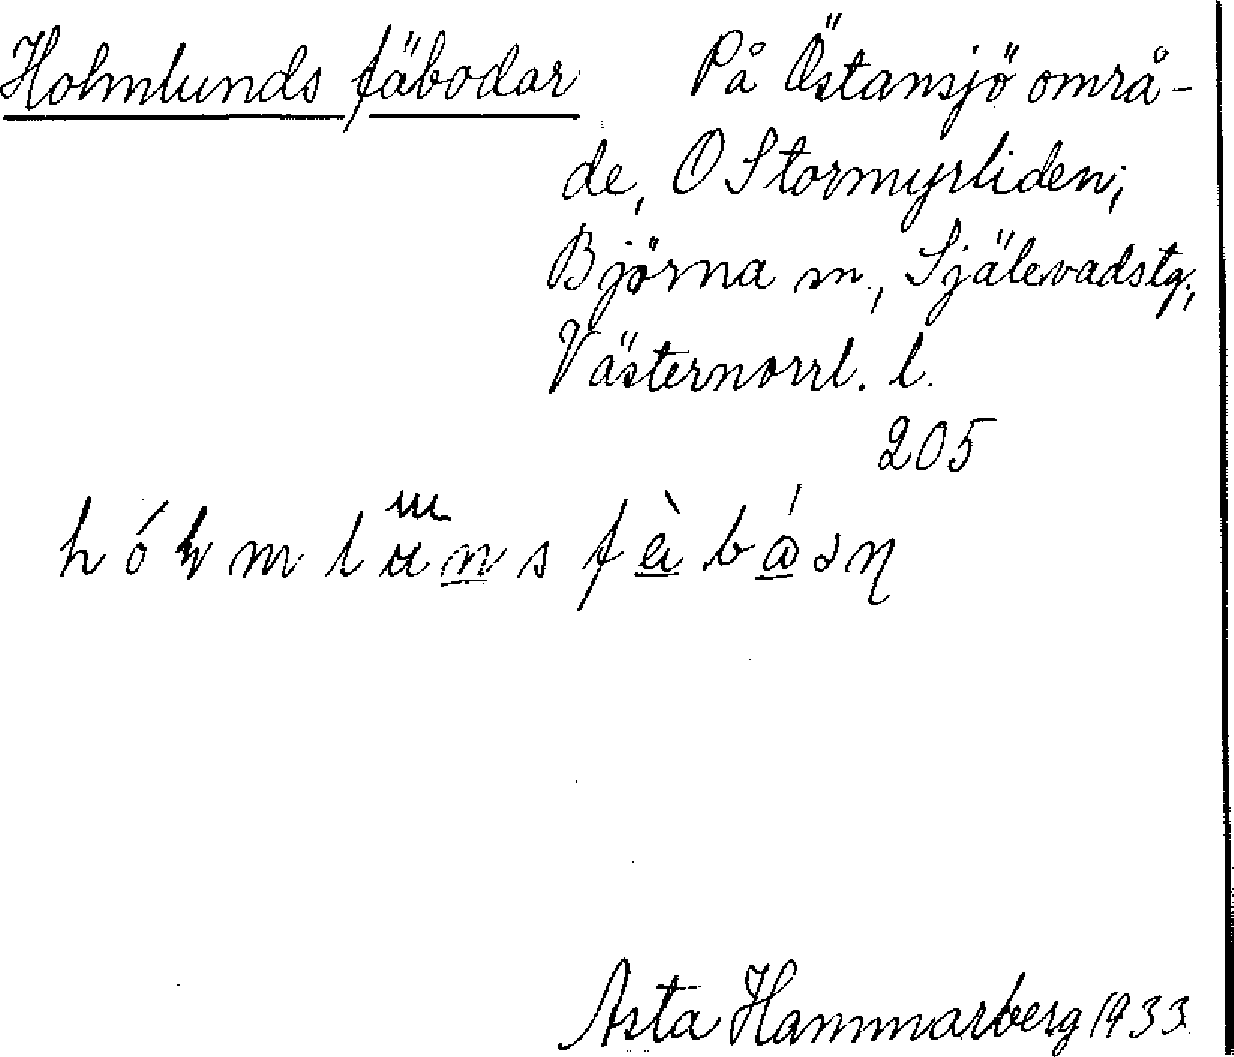 Holmlunds fäbodar På Östansjö områ-
de, O Stormyrliden;
Björna sn., Själevadstg,
Västernorrl. l.
205
Asta Hammarberg 1933